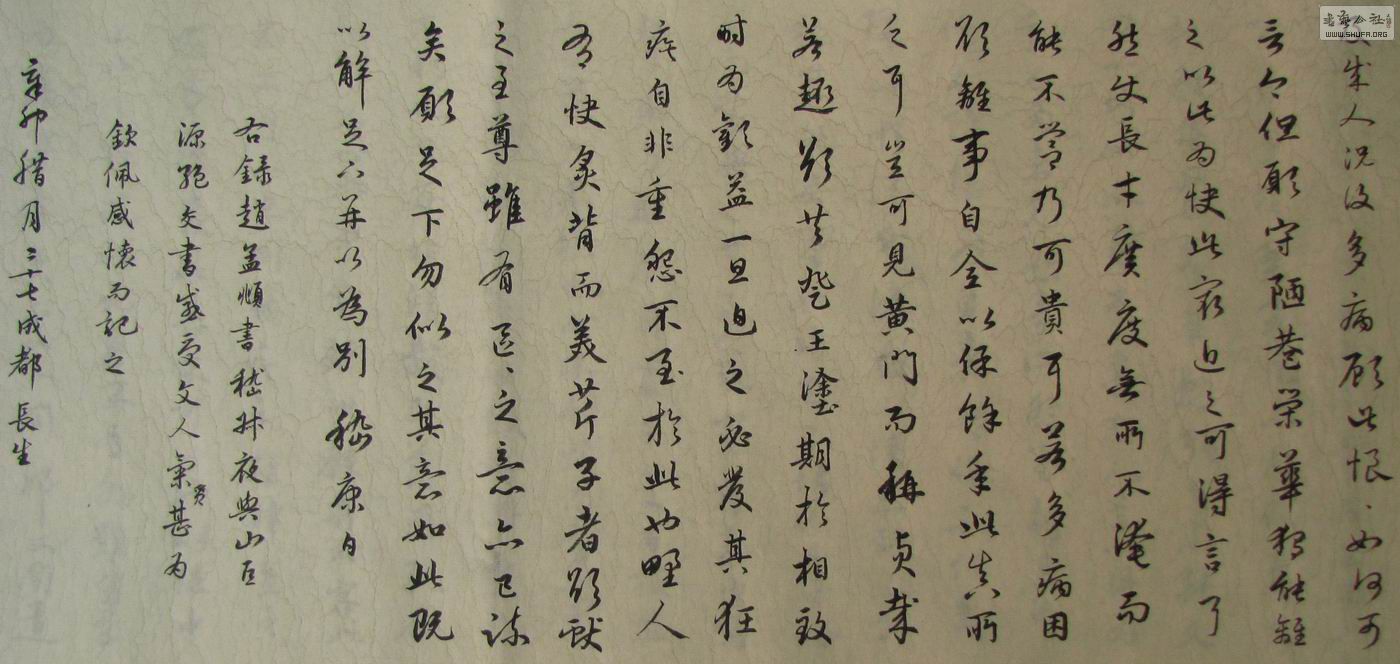 書法公社
WWW.SHUFA.ORG
成人况復多病顧此恨、如何可
言今但願守陋巷榮華獨能離
之以此為快此最近之可得言耳
然使長才廣度無所不淹而
能不營乃可貴耳若多病困
欲離事自全以保餘年此真所
乏耳豈可見黃門而稱貞哉
若趣欲共登王塗期於相致
時為歡益一旦迫之必發其狂
疾自非重怨不至於此也野人
有快炙背而美芹子者欲獻
之至尊雖有區、之意亦已疎
矣願足下勿似之其意如此既
以解足下并以為別 嵇康白
右録趙孟頫書嵇叔夜與山巨
源絶交書感受文人氣質甚為
欽佩感懷而記之
辛卯腊月二十七成都 長生